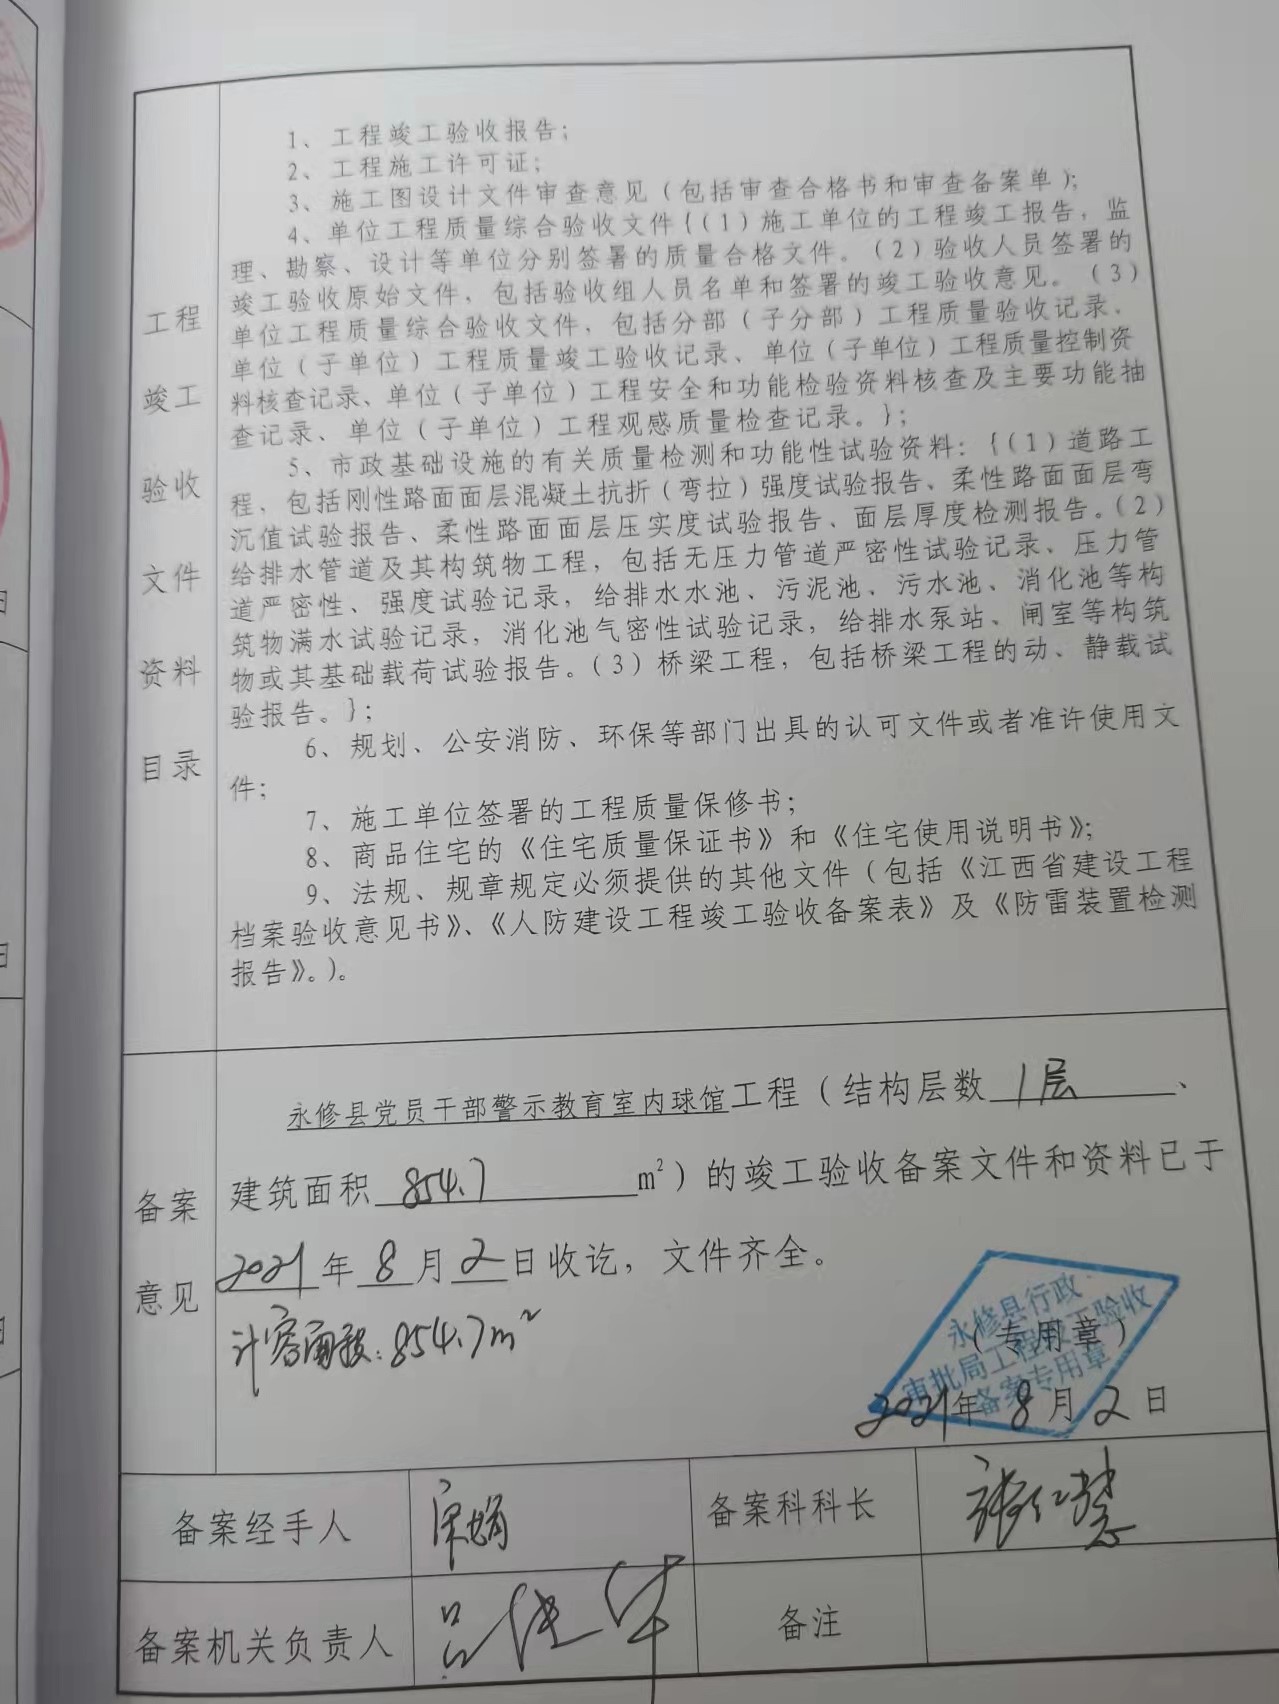 工程
竣工
验收
文件
资料
目录
1、工程竣工验收报告；
2、工程施工许可证；
3、施工图设计文件审查意见（包括审查合格书和审查备案单）；
4、单位工程质量综合验收文件{（1）施工单位的工程竣工报告，监
理、勘察、设计等单位分别签署的质量合格文件。（2）验收人员签署的
竣工验收原始文件，包括验收组人员名单和签署的竣工验收意见。（3）
单位工程质量综合验收文件，包括分部（子分部）工程质量验收记录、
单位（子单位）工程质量竣工验收记录、单位（子单位）工程质量控制资
料核查记录、单位（子单位）工程安全和功能检验资料核查及主要功能抽
查记录、单位（子单位）工程观感质量检查记录。}；
5、市政基础设施的有关质量检测和功能性试验资料：{（1）道路工
程，包括刚性路面面层混凝土抗折（弯拉）强度试验报告、柔性路面面层弯
沉值试验报告、柔性路面面层压实度试验报告、面层厚度检测报告。（2）
给排水管道及其构筑物工程，包括无压力管道严密性试验记录、压力管
道严密性、强度试验记录，给排水水池、污泥池、污水池、消化池等构
筑物满水试验记录，消化池气密性试验记录，给排水泵站、闸室等构筑
物或其基础载荷试验报告。（3）桥梁工程，包括桥梁工程的动、静载试
验报告。}；
6、规划、公安消防、环保等部门出具的认可文件或者准许使用文
件；
7、施工单位签署的工程质量保修书；
8、商品住宅的《住宅质量保证书》和《住宅使用说明书》；
9、法规、规章规定必须提供的其他文件（包括《江西省建设工程
档案验收意见书》、《人防建设工程竣工验收备案表》及《防雷装置检测
报告》。）。
备案
意见
永修县党员干部警示教育室内球馆工程（结构层数 1层 、
建筑面积 854.7 m²）的竣工验收备案文件和资料已于
2021年8月2日收讫，文件齐全。
计容面积：854.7m²
永修县行政
审批局工程竣工验收
备案专用章
（专用章）
2021年8月2日
备案经手人 宋娟 备案科科长
备案机关负责人 备注